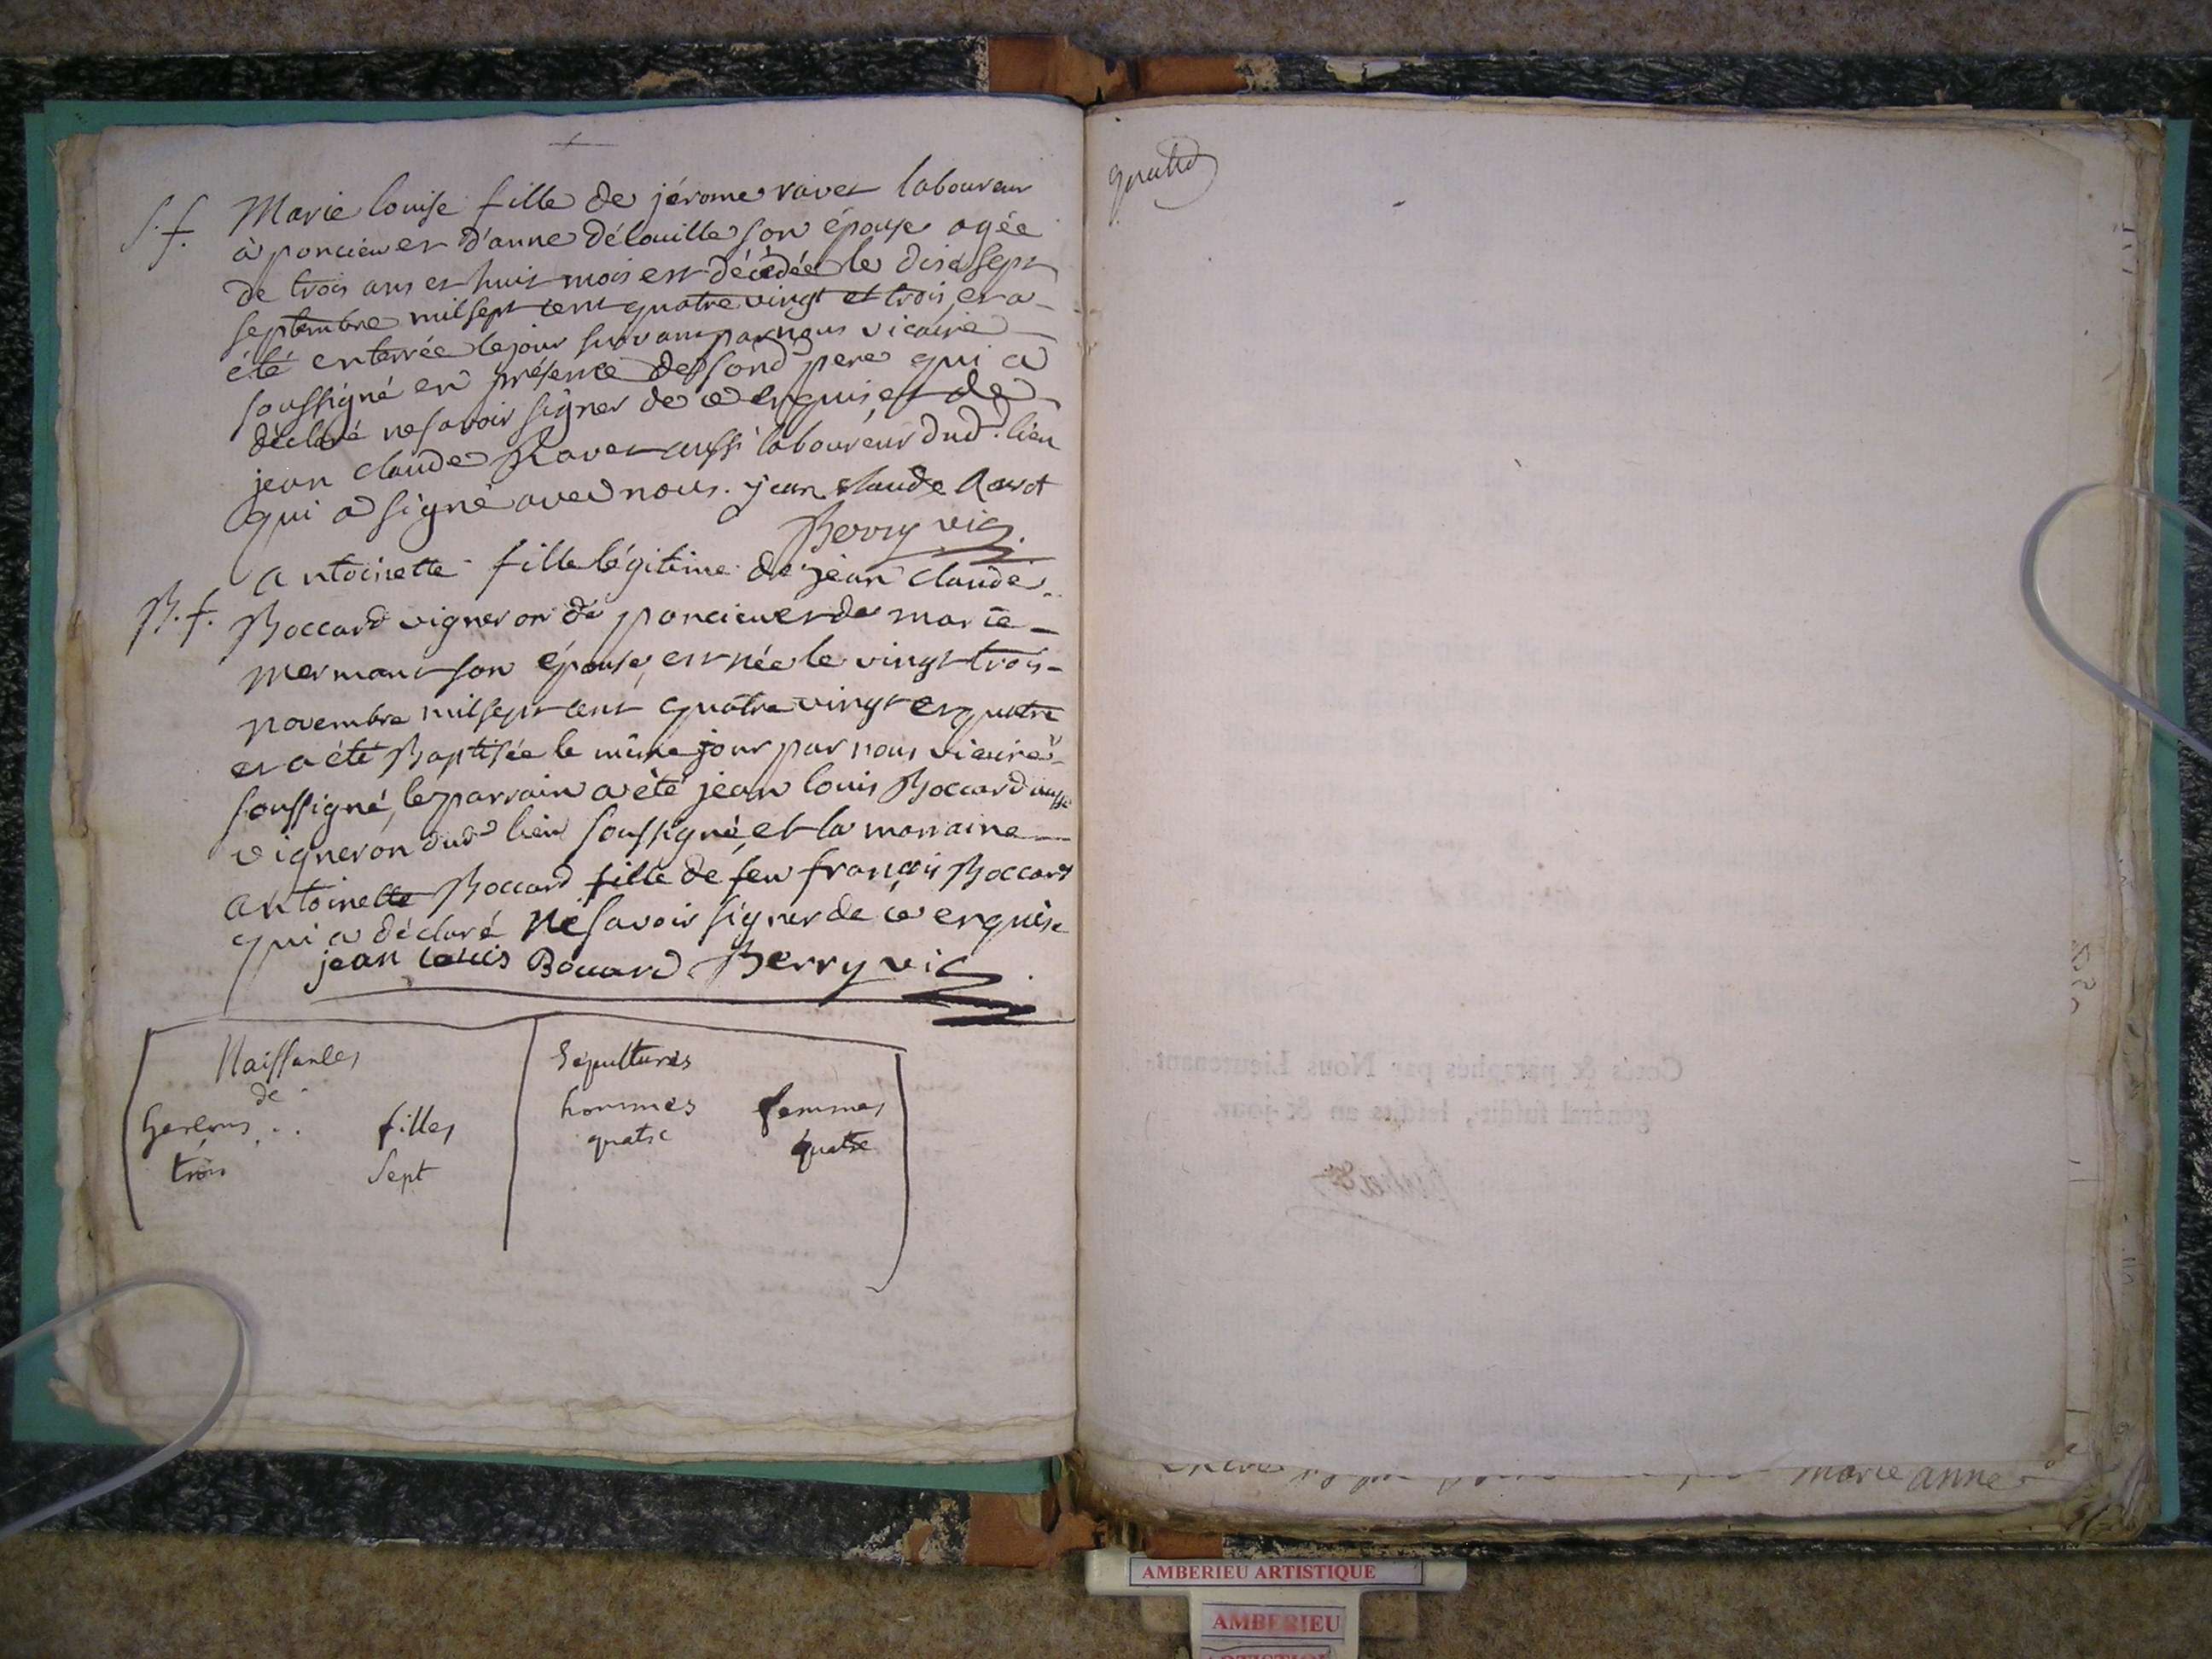 S.f. Marie louise fille de jérome ravet laboureur
à poncieu et d'anne délouille son épouse agée
de trois ans et huit mois est décédée le dix sept
septembre mil sept cent quatre vingt et trois, et a
été enterrée le jour suivant par nous vicaire
soussigné en présence de sond pere qui a
déclaré ne savoir signer de ce enquis, et de
jean claude Ravet aussi laboureur dud. lieu
qui a signé avec nous. jean claude Ravet
Berry vic.
antoinette fille légitime de jean claude
B.f. Boccard vigneron de poncieu et de marie
mermant son épouse, est née le vingt trois
novembre mil sept cent quatre vingt et quatre
et a été Baptisée le même jour par nous vicaire
soussigné, le parrain a été jean louis Boccard aussi
vigneron dud lieu soussigné, et la marraine
antoinette Boccard fille de feu françois Boccard
qui a déclaré Ne savoir signer de ce enquise
jean louis Boccard Berry vic
Naissances
de
Garçons .. filles
trois sept
Sépultures
hommes femmes
quatre quatre
Cotés & paraphés par Nous Lieutenant-
général susdit, lesdits an & jour.
marie anne
AMBERIEU ARTISTIQUE
AMBERIEU
ARTISTIQUE